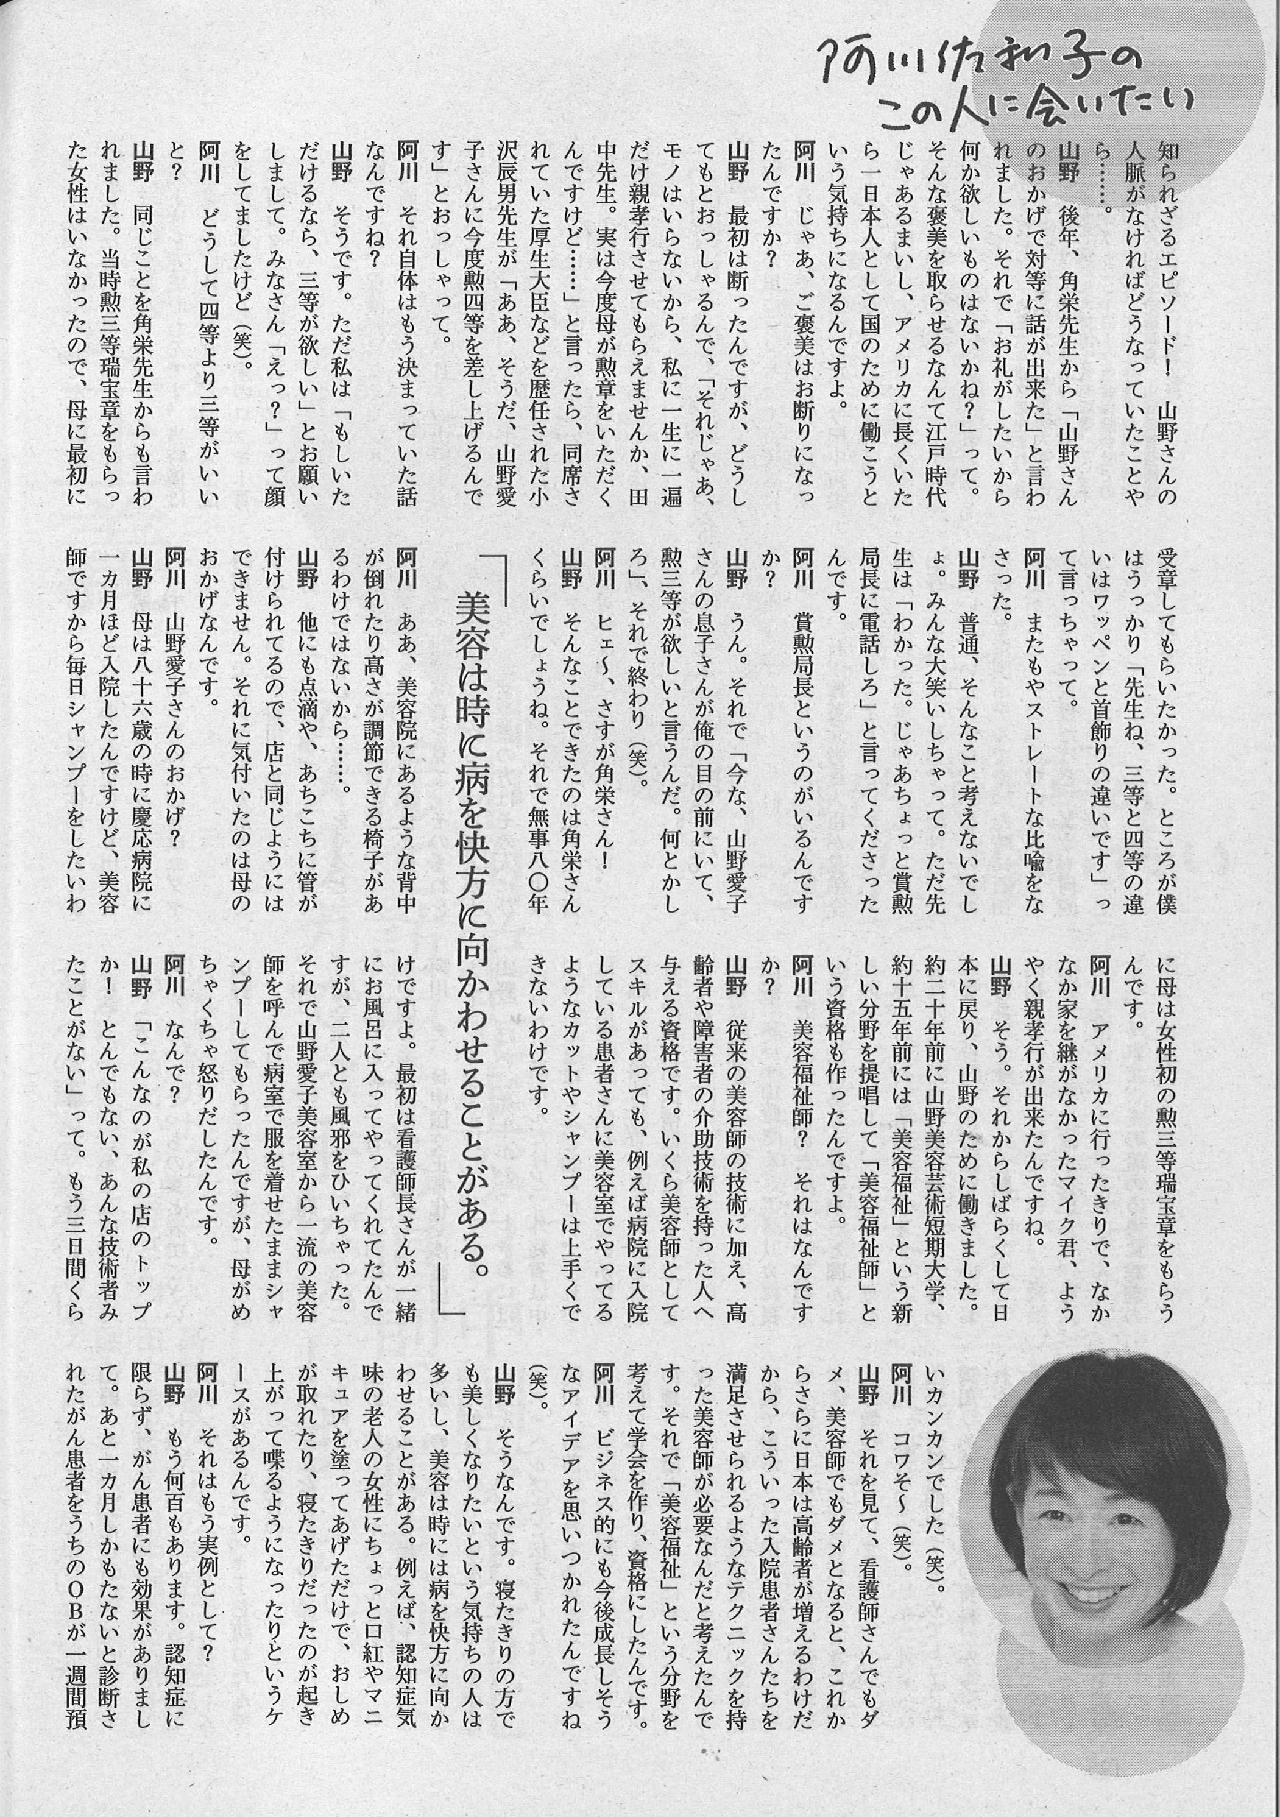 阿川佐和子の
この人に会いたい
知られざるエピソード！　山野さんの
人脈がなければどうなっていたことや
ら……。
山野　後年、角栄先生から「山野さん
のおかげで対等に話が出来た」と言わ
れました。それで「お礼がしたいから
何か欲しいものはないかね？」って。
そんな褒美を取らせるなんて江戸時代
じゃあるまいし、アメリカに長くいた
ら一日本人として国のために働こうと
いう気持ちになるんですよ。
阿川　じゃあ、ご褒美はお断りになっ
たんですか？
山野　最初は断ったんですが、どうし
てもとおっしゃるんで、「それじゃあ、
モノはいらないから、私に一生に一遍
だけ親孝行させてもらえませんか、田
中先生。実は今度母が勲章をいただく
んですけど……」と言ったら、同席さ
れていた厚生大臣などを歴任された小
沢辰男先生が「ああ、そうだ、山野愛
子さんに今度勲四等を差し上げるんで
す」とおっしゃって。
阿川　それ自体はもう決まっていた話
なんですね？
山野　そうです。ただ私は「もしいた
だけるなら、三等が欲しい」とお願い
しまして。みなさん「えっ？」って顔
をしてましたけど（笑）。
阿川　どうして四等より三等がいい
と？
山野　同じことを角栄先生からも言わ
れました。当時勲三等瑞宝章をもらっ
た女性はいなかったので、母に最初に
受章してもらいたかった。ところが僕
はうっかり「先生ね、三等と四等の違
いはワッペンと首飾りの違いです」っ
て言っちゃって。
阿川　またもやストレートな比喩をな
さった。
山野　普通、そんなこと考えないでし
ょ。みんな大笑いしちゃって。ただ先
生は「わかった。じゃあちょっと賞勲
局長に電話しろ」と言ってくださった
んです。
阿川　賞勲局長というのがいるんです
か？
山野　うん。それで「今な、山野愛子
さんの息子さんが俺の目の前にいて、
勲三等が欲しいと言うんだ。何とかし
ろ」、それで終わり（笑）。
阿川　ヒェ〜、さすが角栄さん！
山野　そんなことできたのは角栄さん
くらいでしょうね。それで無事八〇年
に母は女性初の勲三等瑞宝章をもらう
んです。
阿川　アメリカに行ったきりで、なか
なか家を継がなかったマイク君、よう
やく親孝行が出来たんですね。
山野　そう。それからしばらくして日
本に戻り、山野のために働きました。
約二十年前に山野美容芸術短期大学、
約十五年前には「美容福祉」という新
しい分野を提唱して「美容福祉師」と
いう資格も作ったんですよ。
阿川　美容福祉師？　それはなんです
か？
山野　従来の美容師の技術に加え、高
齢者や障害者の介助技術を持った人へ
与える資格です。いくら美容師として
スキルがあっても、例えば病院に入院
している患者さんに美容室でやってる
ようなカットやシャンプーは上手くで
きないわけです。
「美容は時に病を快方に向かわせることがある。」
阿川　ああ、美容院にあるような背中
が倒れたり高さが調節できる椅子があ
るわけではないから……。
山野　他にも点滴や、あちこちに管が
付けられてるので、店と同じようには
できません。それに気付いたのは母の
おかげなんです。
阿川　山野愛子さんのおかげ？
山野　母は八十六歳の時に慶応病院に
一カ月ほど入院したんですけど、美容
師ですから毎日シャンプーをしたいわ
けですよ。最初は看護師長さんが一緒
にお風呂に入ってやってくれてたんで
すが、二人とも風邪をひいちゃった。
それで山野愛子美容室から一流の美容
師を呼んで病室で服を着せたままシャ
ンプーしてもらったんですが、母がめ
ちゃくちゃ怒りだしたんです。
阿川　なんで？
山野　「こんなのが私の店のトップ
か！　とんでもない、あんな技術者み
たことがない」って。もう三日間くら
いカンカンでした（笑）。
阿川　コワそ〜（笑）。
山野　それを見て、看護師さんでもダ
メ、美容師でもダメとなると、これか
らさらに日本は高齢者が増えるわけだ
から、こういった入院患者さんたちを
満足させられるようなテクニックを持
った美容師が必要なんだと考えたんで
す。それで「美容福祉」という分野を
考えて学会を作り、資格にしたんです。
阿川　ビジネス的にも今後成長しそう
なアイデアを思いつかれたんですね
（笑）。
山野　そうなんです。寝たきりの方で
も美しくなりたいという気持ちの人は
多いし、美容は時には病を快方に向か
わせることがある。例えば、認知症気
味の老人の女性にちょっと口紅やマニ
キュアを塗ってあげただけで、おしめ
が取れたり、寝たきりだったのが起き
上がって喋るようになったりというケ
ースがあるんです。
阿川　それはもう実例として？
山野　もう何百もあります。認知症に
限らず、がん患者にも効果がありまし
て。あと一カ月しかもたないと診断さ
れたがん患者をうちのＯＢが一週間預